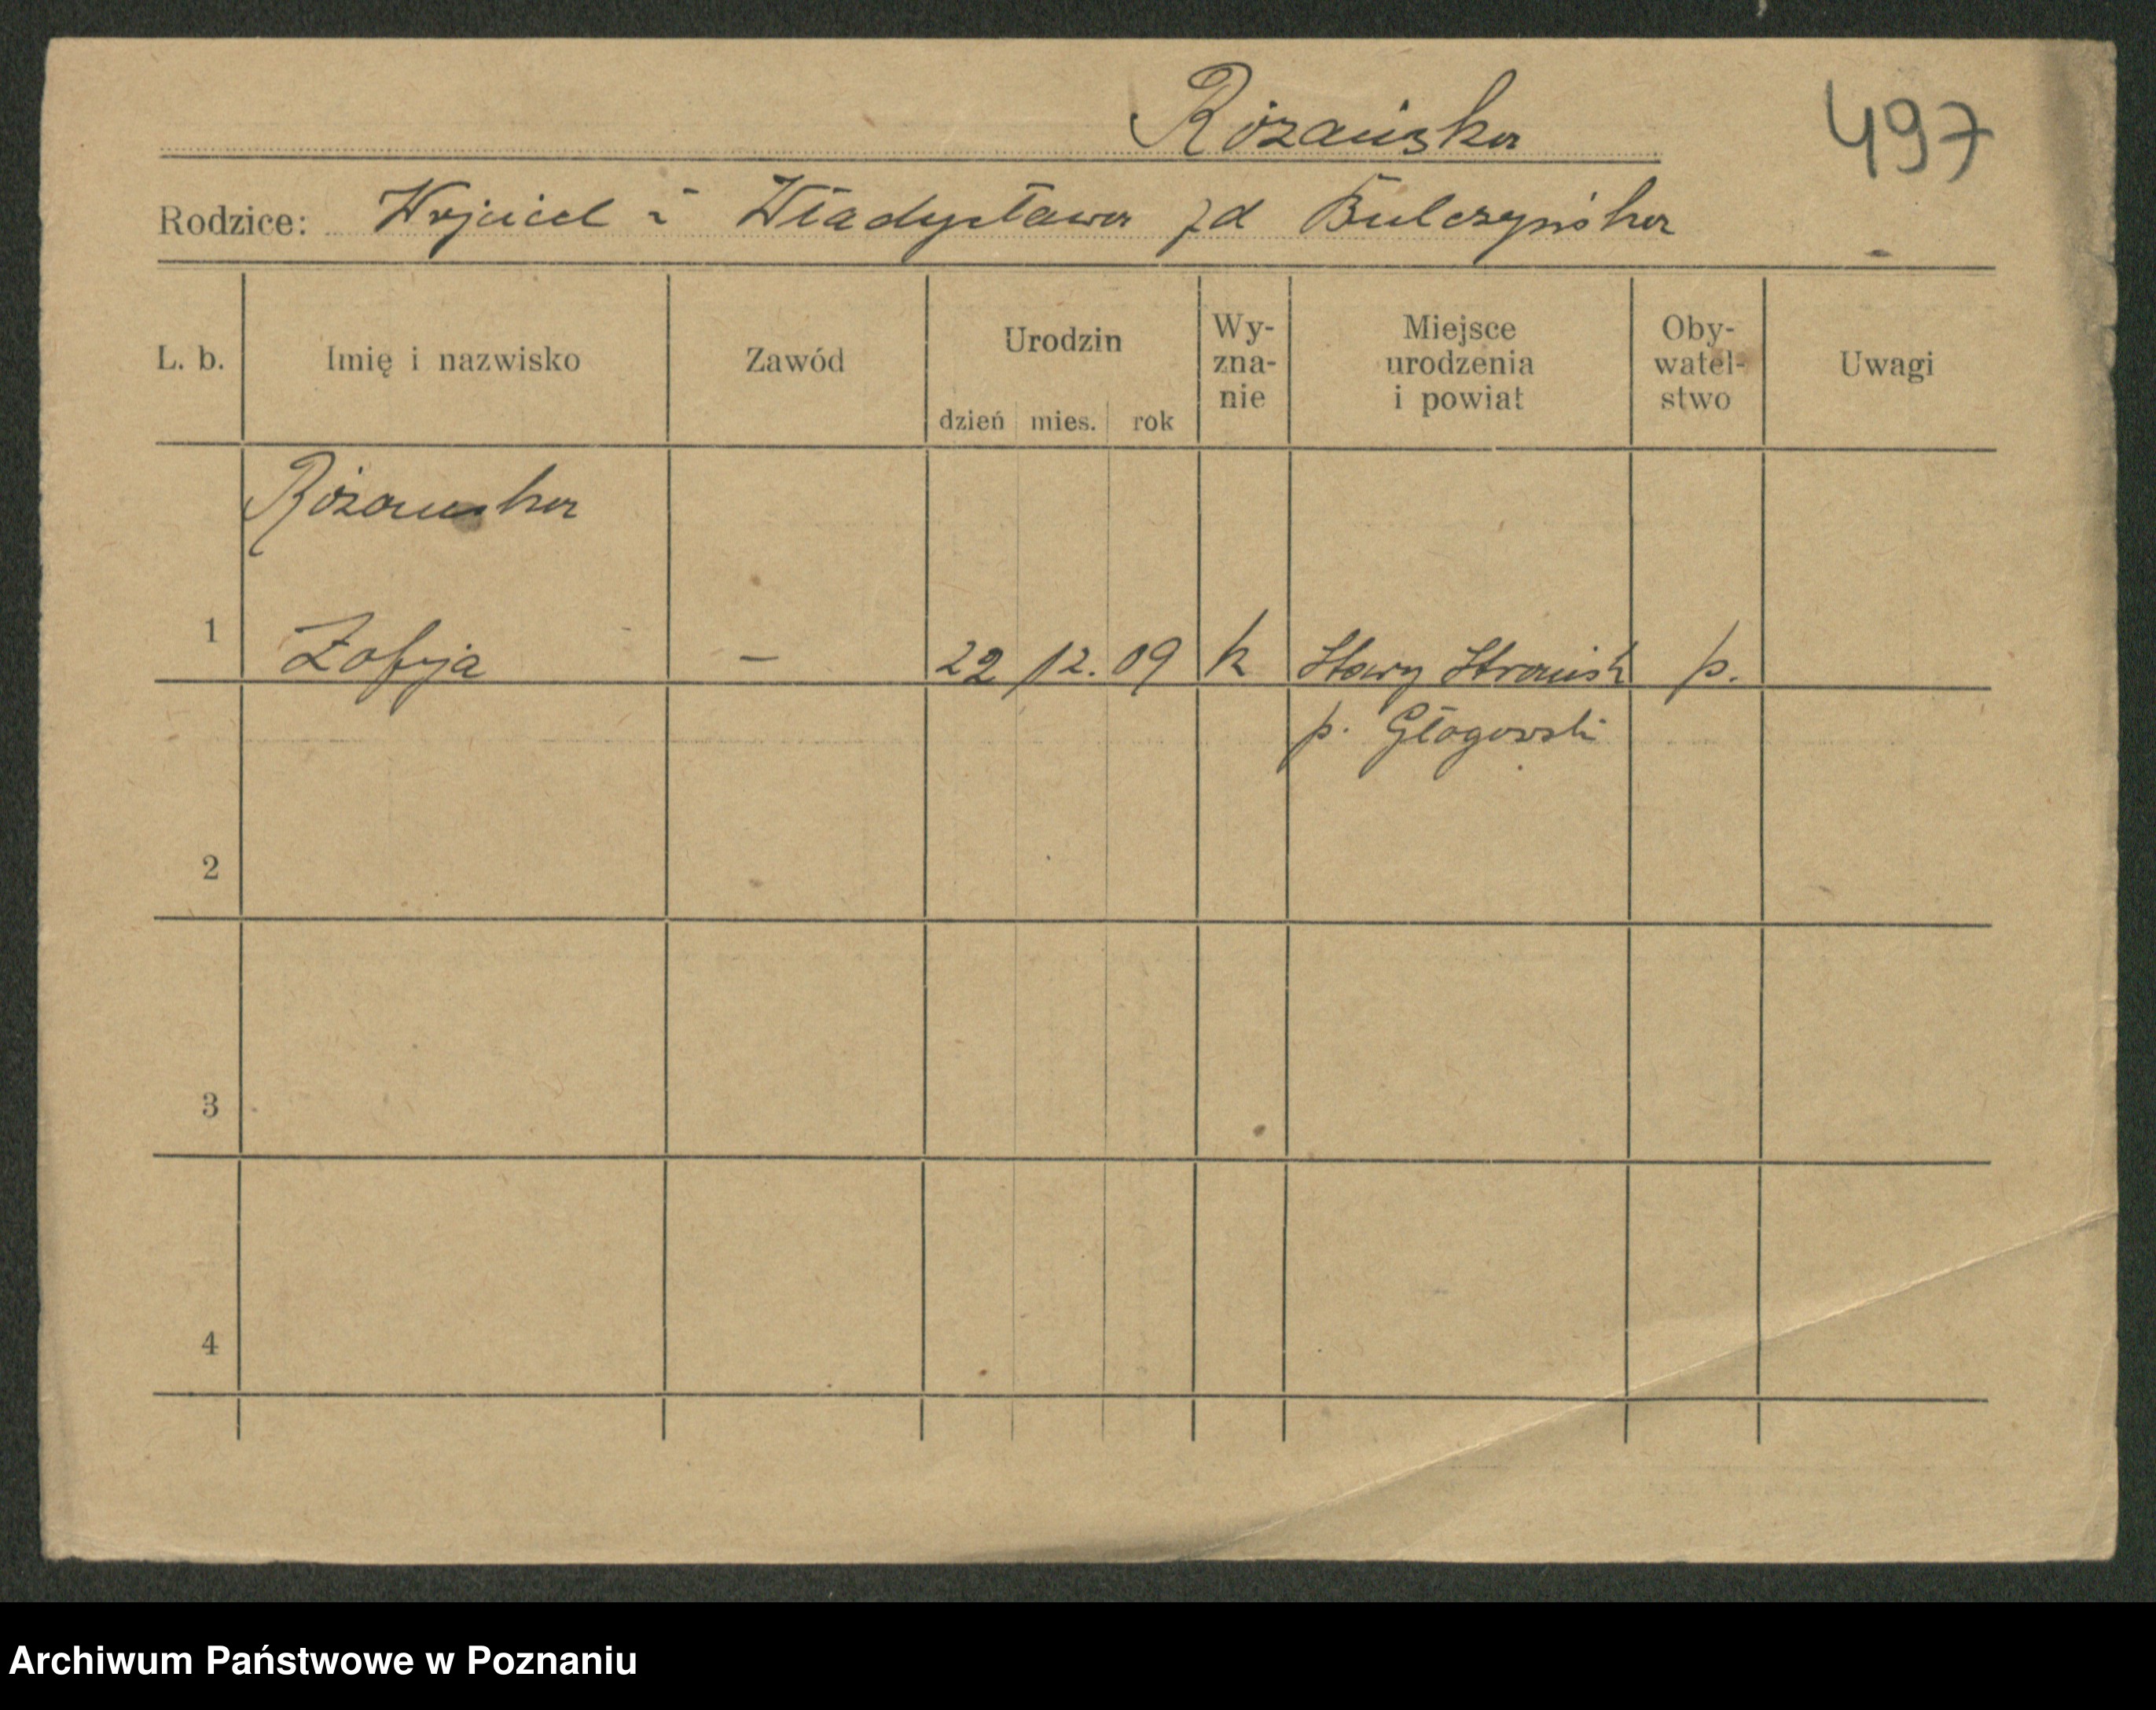 Różańska
497
Rodzice: Wojciech i Władysława zd Bulczyńska
L. b. Imię i nazwisko Zawód Urodzin dzień mies. rok Wy-zna-nie Miejsce urodzenia i powiat Oby-watel-stwo Uwagi
Różańska
1 Zofja – 22 12. 09 k Stary p.
p. Głogowski
2
3
4
Archiwum Państwowe w Poznaniu